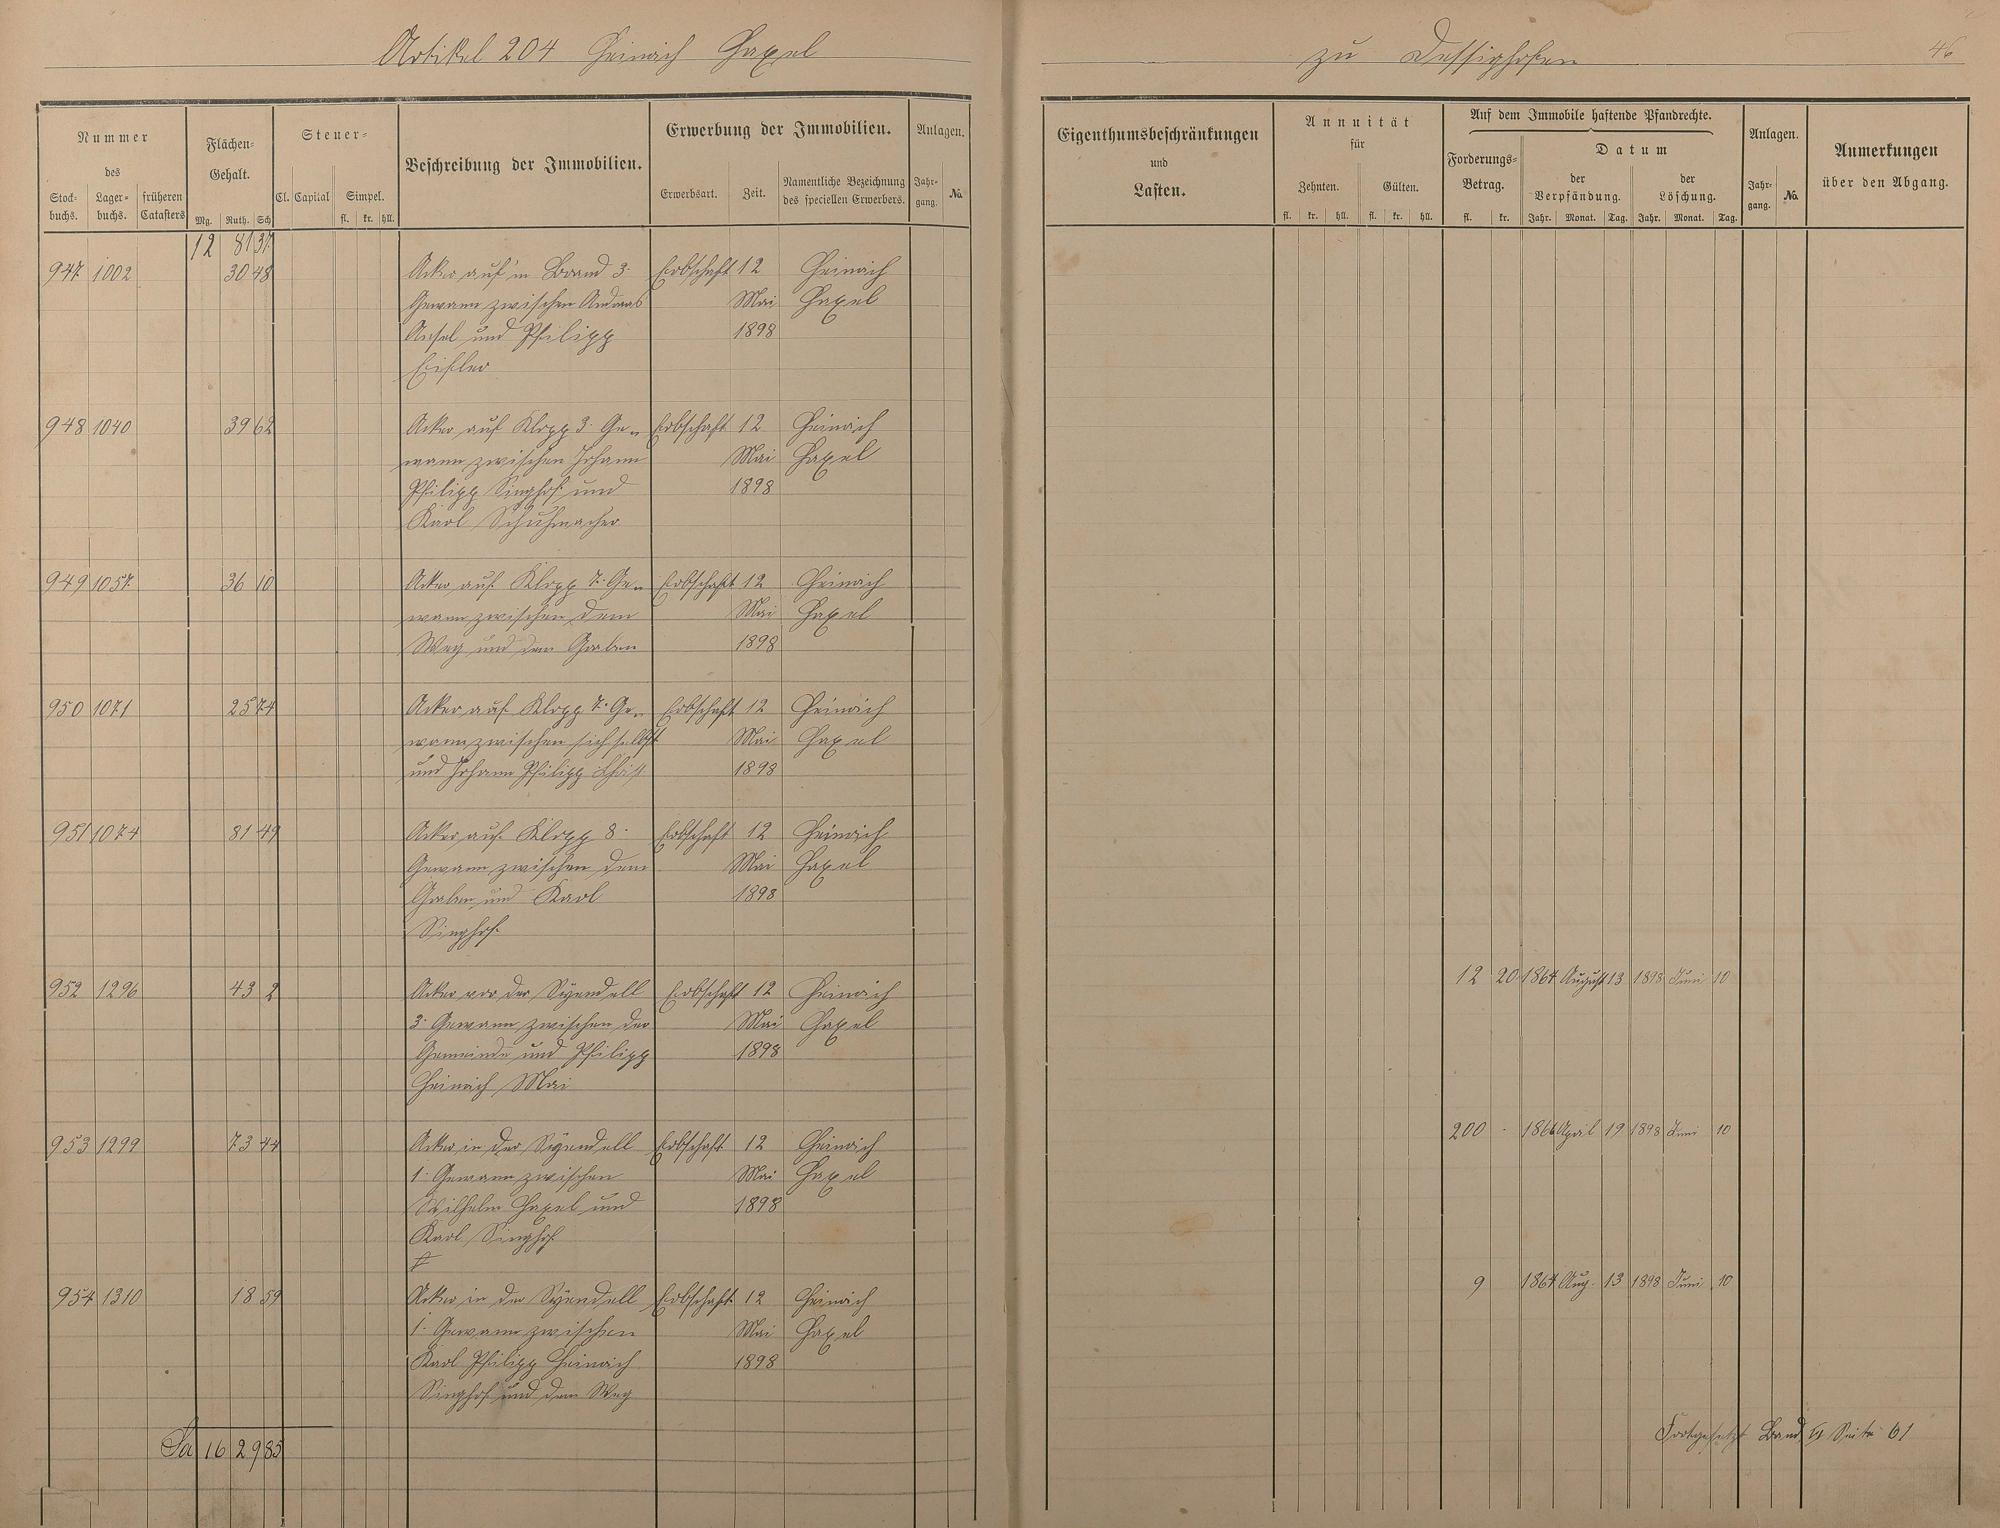 Artikel 204 Heinrich Haxel
zu Dessighofen
46
Nummer
des
Stock-
buchs.
Lager-
buchs.
früheren
Catasters
Flächen-
Gehalt.
Mg. Ruth. Sch
Steuer-
Cl. Capital Simpel.
fl. kr. hll.
Beschreibung der Immobilien.
Erwerbung der Immobilien.
Erwerbsart. Zeit.
Namentliche Bezeichnung
des speciellen Erwerbers.
Anlagen.
Jahr-
gang.
No.
Eigenthumsbeschränkungen
und
Lasten.
Annuität
für
Zehnten. Gülten.
fl. kr. hll. fl. kr. hll.
Auf dem Immobile haftende Pfandrechte.
Forderungs-
Betrag.
fl. kr.
Datum
der
Verpfändung.
Jahr. Monat. Tag.
der
Löschung.
Jahr. Monat. Tag.
Anlagen.
Jahr-
gang.
No.
Anmerkungen
über den Abgang.
12 81 37
947 1002 30 48 Acker auf'm Brand 3. Erbschaft 12 Heinrich
Gewann zwischen Andreas Mai Haxel
Ansel und Philipp 1898
948 1040 39 62 Acker auf Klopp 3. Ge- Erbschaft 12 Heinrich
wann zwischen Johann Mai Haxel
Philipp Singhof und 1898
Karl Schuhmacher
949 1057 36 10 Acker auf Klopp 7. Ge- Erbschaft 12 Heinrich
wann zwischen dem Mai Haxel
Weg und dem Graben 1898
950 1071 25 74 Acker auf Klopp 7. Ge- Erbschaft 12 Heinrich
wann zwischen sich selbst Mai Haxel
und Johann Philipp 1898
951 1074 81 49 Acker auf Klopp 8. Erbschaft 12 Heinrich
Gewann zwischen dem Mai Haxel
Graben und Karl 1898
Singhof
952 1296 43 2 Acker vor der Erbschaft 12 Heinrich 12 20 1867 August 13 1898 Juni 10
3. Gewann zwischen der Mai Haxel
Gemeinde und Philipp 1898
Heinrich Mai
953 1299 73 44 Acker in der Erbschaft 12 Heinrich 200 - 1866 April 19 1898 Juni 10
1. Gewann zwischen Mai Haxel
Wilhelm Haxel und 1898
Karl Singhof
954 1310 18 59 Acker in der Erbschaft 12 Heinrich 9 1867 Aug. 13 1898 Juni 10
1. Gewann zwischen Mai Haxel
Karl Philipp Heinrich 1898
Singhof und dem Weg
Sa 16 29 85
Fortgesetzt Band Seite 61